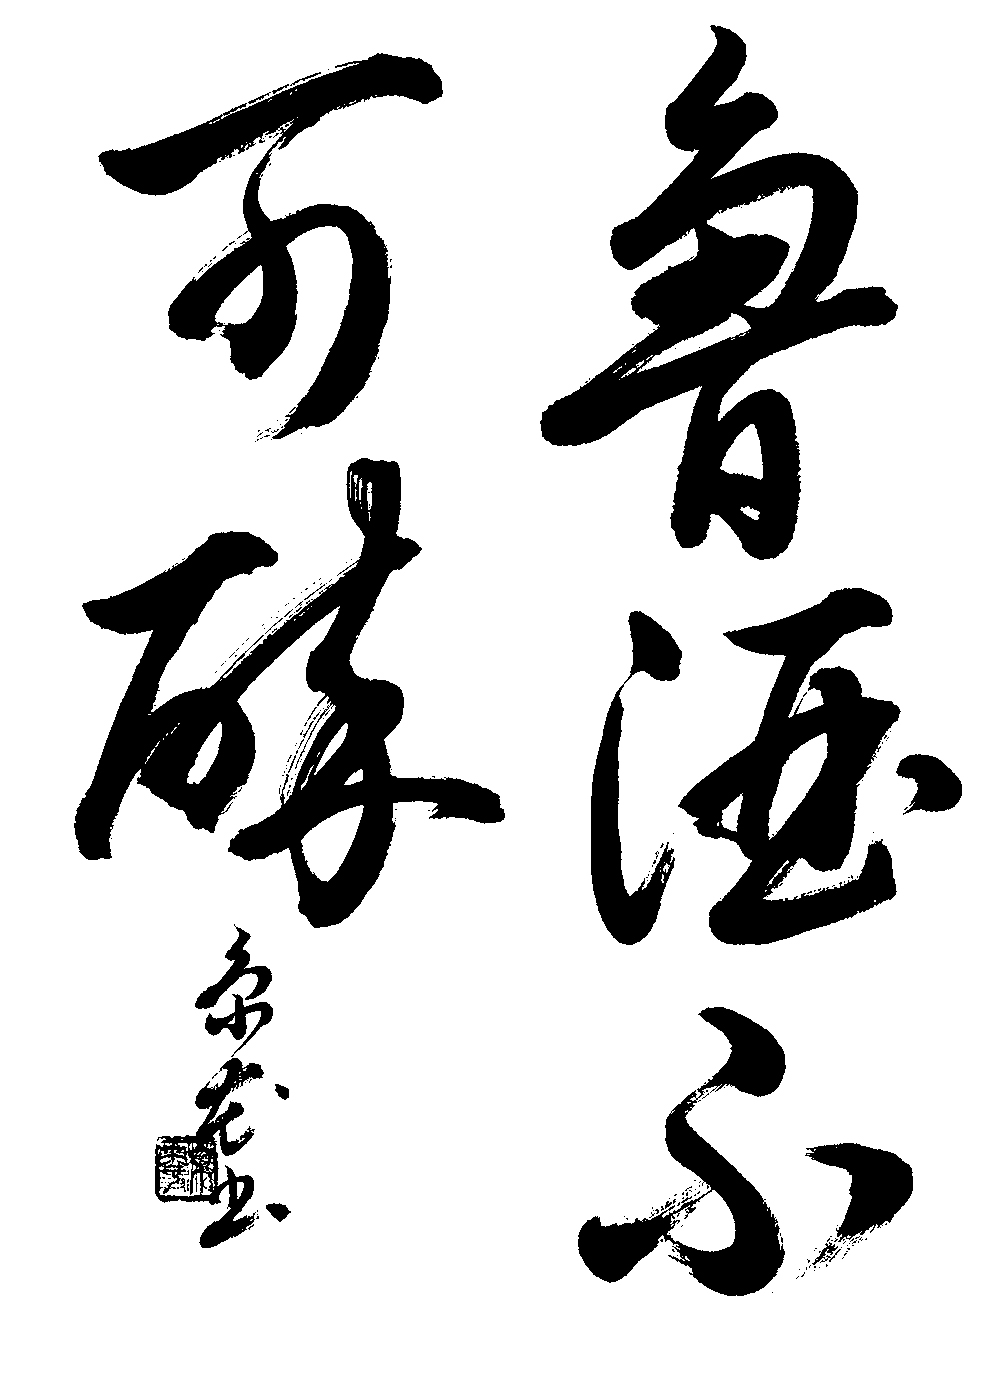 魯酒不
可醉